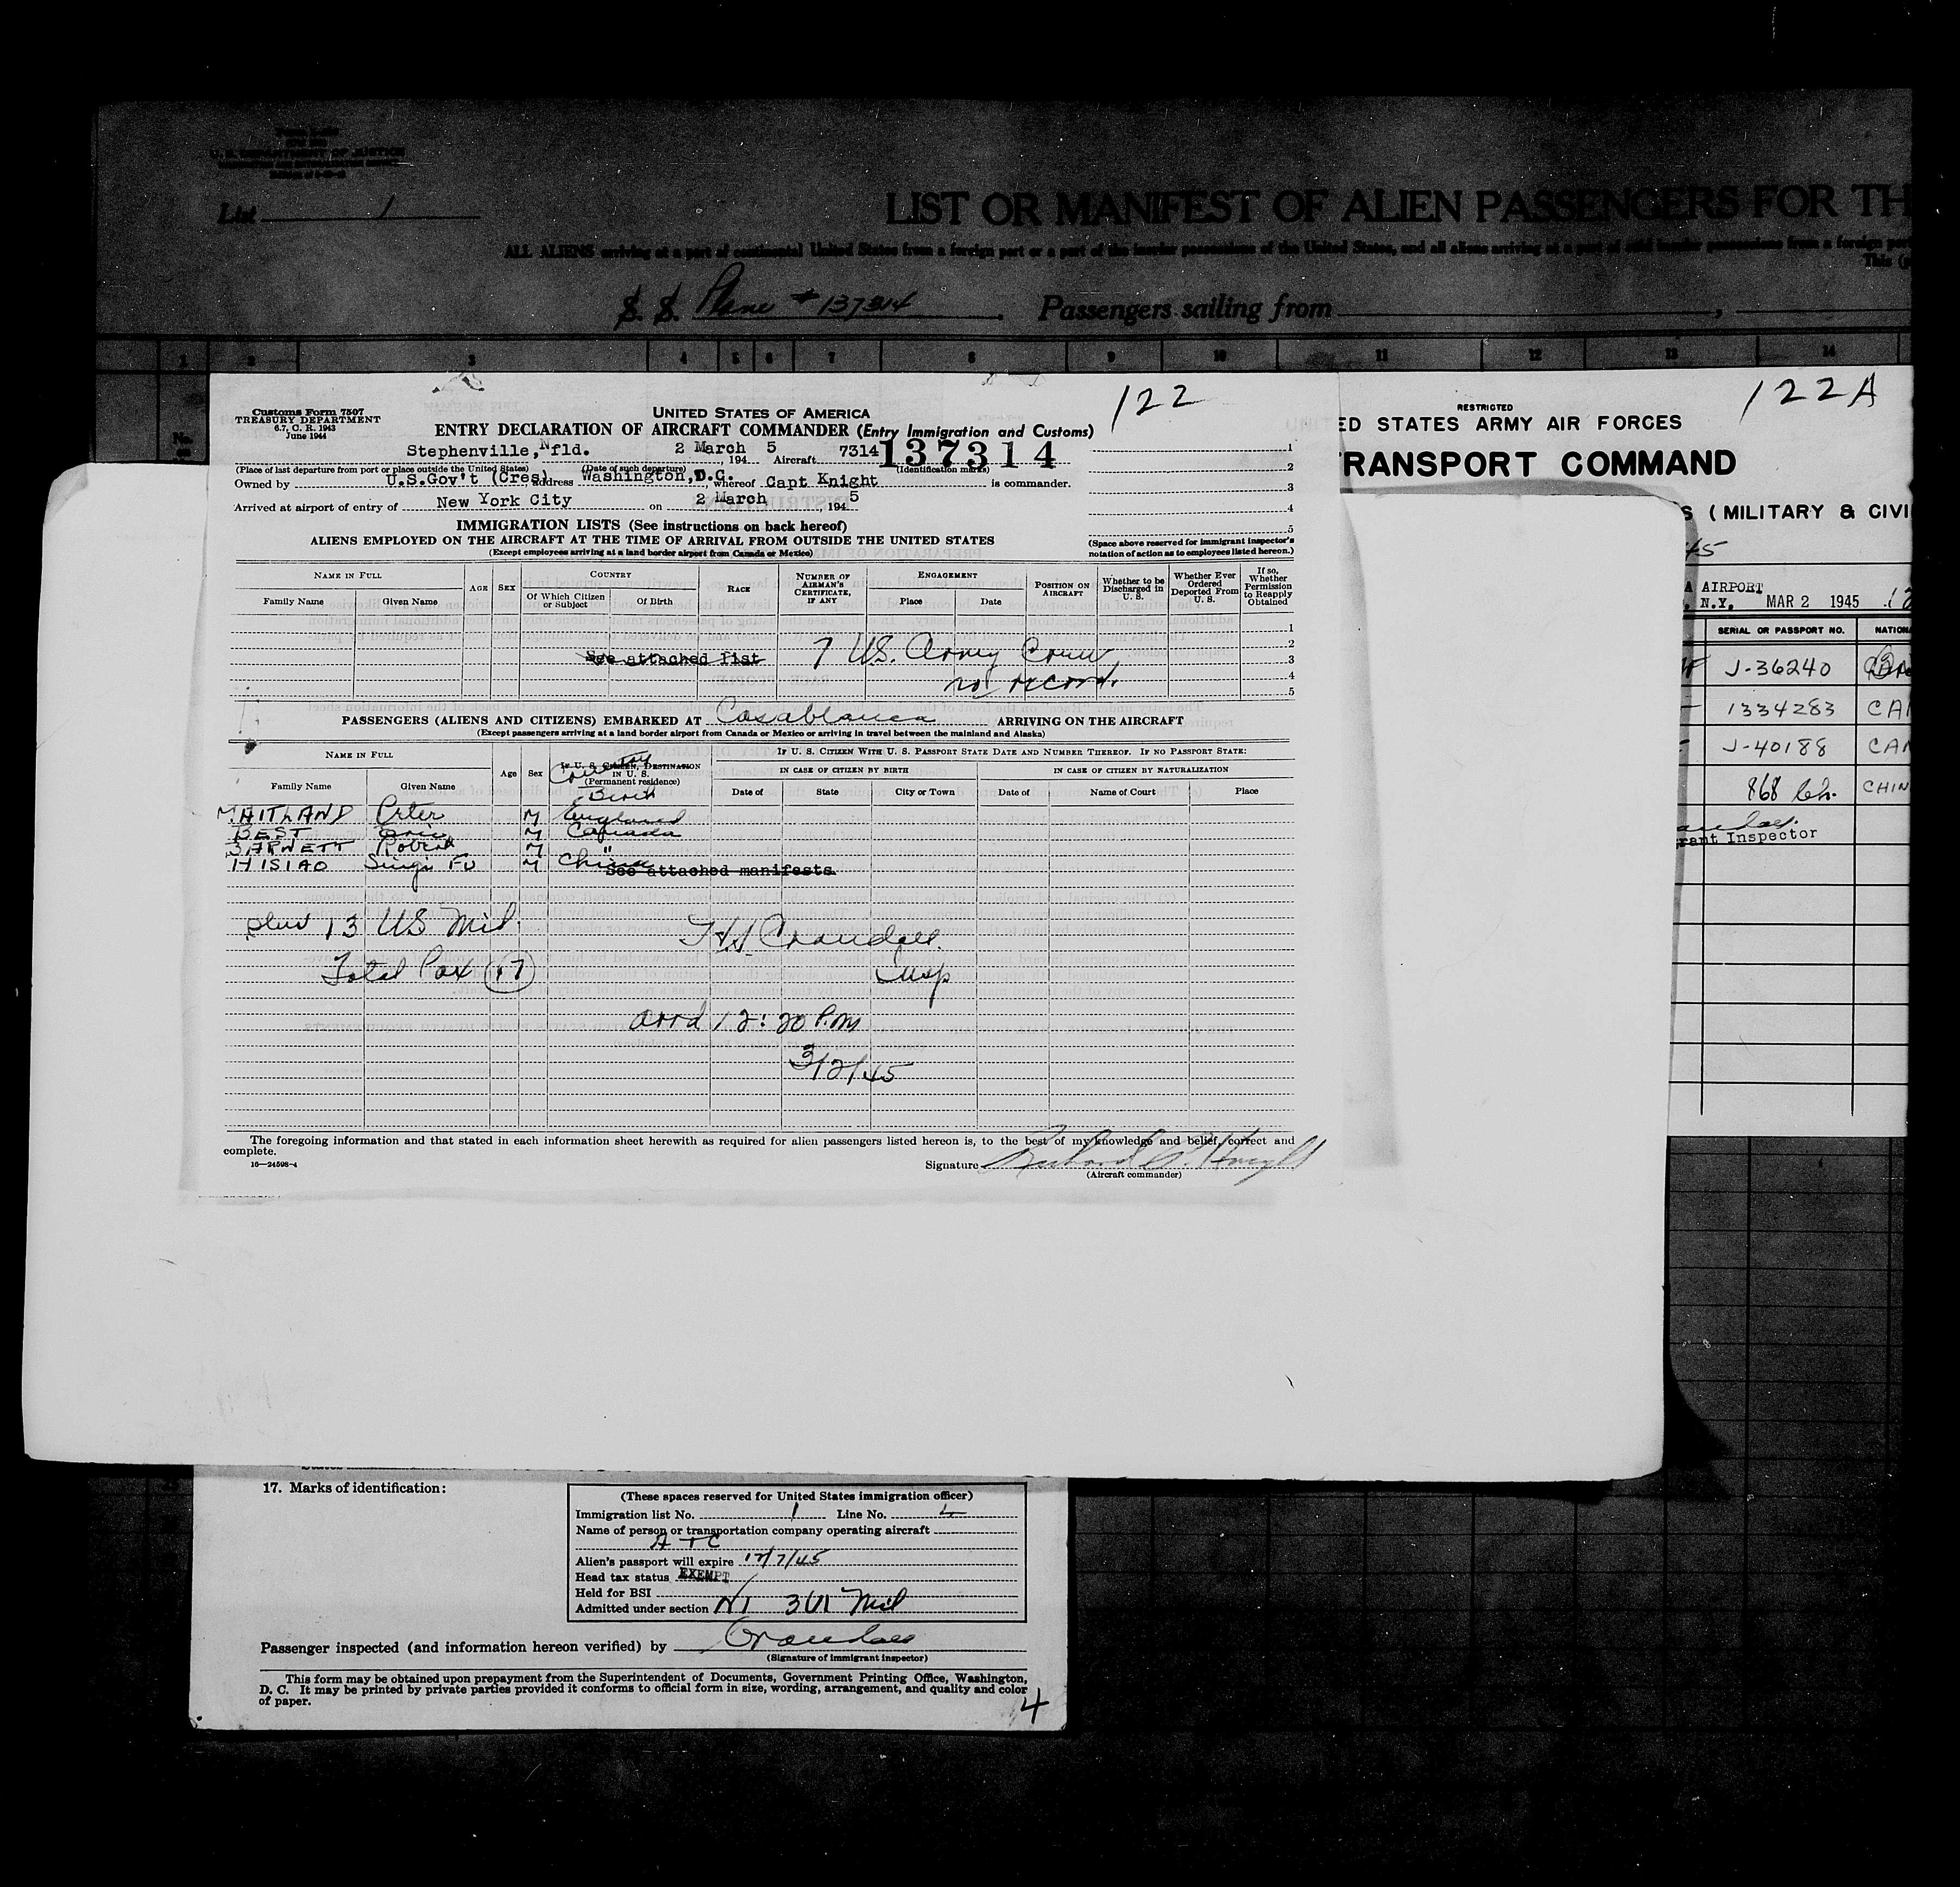 U. S. DEPARTMENT OF JUSTICE
List 1
LIST OR MANIFEST OF ALIEN PASSENGERS FOR TH
ALL ALIENS arriving at a port of continental United States from a foreign port or a port of the insular possessions of the United States, and all aliens arriving at a port of said insular possessions from a foreign por
This (
S. S. Plane # 137314 Passengers sailing from
1 2 3 4 5 6 7 8 9 10 11 12 13 14
No.
122
Customs Form 7507
TREASURY DEPARTMENT
6.7, C. R. 1943
June 1944
UNITED STATES OF AMERICA
ENTRY DECLARATION OF AIRCRAFT COMMANDER (Entry Immigration and Customs)
Stephenville, Nfld. 2 March, 194 5 Aircraft 7314 137314
(Place of last departure from port or place outside the United States) (Date of such departure) (Identification marks)
Owned by U.S.Gov't (Cres), address Washington, D.C., whereof Capt Knight is commander.
Arrived at airport of entry of New York City on 2 March, 194 5
1
2
3
4
5
(Space above reserved for immigrant inspector's notation of action as to employees listed hereon.)
IMMIGRATION LISTS (See instructions on back hereof)
ALIENS EMPLOYED ON THE AIRCRAFT AT THE TIME OF ARRIVAL FROM OUTSIDE THE UNITED STATES
(Except employees arriving at a land border airport from Canada or Mexico)
NAME IN FULL AGE SEX COUNTRY RACE NUMBER OF AIRMAN'S CERTIFICATE, IF ANY ENGAGEMENT POSITION ON AIRCRAFT Whether to be Discharged in U. S. Whether Ever Ordered Deported From U. S. If so, Whether Permission to Reapply Obtained
Family Name Given Name Of Which Citizen or Subject Of Birth Place Date
1
2
See attached list 7 U.S. Army Crew 3
no record. 4
5
PASSENGERS (ALIENS AND CITIZENS) EMBARKED AT Casablanca ARRIVING ON THE AIRCRAFT
(Except passengers arriving at a land border airport from Canada or Mexico or arriving in travel between the mainland and Alaska)
NAME IN FULL Age Sex IF U. S. CITIZEN, DESTINATION IN U. S. (Permanent residence) IF U. S. CITIZEN WITH U. S. PASSPORT STATE DATE AND NUMBER THEREOF. IF NO PASSPORT STATE:
Country Birth
IN CASE OF CITIZEN BY BIRTH IN CASE OF CITIZEN BY NATURALIZATION
Family Name Given Name Date of State City or Town Date of Name of Court Place
MAITLAND Peter M England
BEST Eric M Canada
BARNETT Robert M "
HISIAO Singi Fu M China
See attached manifests
plus 13 US Mil.
Crandall
Insp
Total Pax 17
arrd 12:20 P.M
3/2/45
The foregoing information and that stated in each information sheet herewith as required for alien passengers listed hereon is, to the best of my knowledge and belief, correct and
complete.
16—24598-4
Signature Richard Knight
(Aircraft commander)
122A
RESTRICTED
ED STATES ARMY AIR FORCES
RANSPORT COMMAND
S (MILITARY & CIVI
45
A AIRPORT
N.Y. MAR 2 1945
SERIAL OR PASSPORT NO. NATION
J-36240
1334283 CAN
J-40188 CAN
868 Ch. CHIN
rant Inspector
17. Marks of identification:
(These spaces reserved for United States immigration officer)
Immigration list No. 1 Line No. 4
Name of person or transportation company operating aircraft
ATC
Alien's passport will expire 12/7/45
Head tax status EXEMPT
Held for BSI
Admitted under section 3(1) Mil
Passenger inspected (and information hereon verified) by Crandall
(Signature of immigrant inspector)
This form may be obtained upon prepayment from the Superintendent of Documents, Government Printing Office, Washington,
D. C. It may be printed by private parties provided it conforms to official form in size, wording, arrangement, and quality and color
of paper.
4